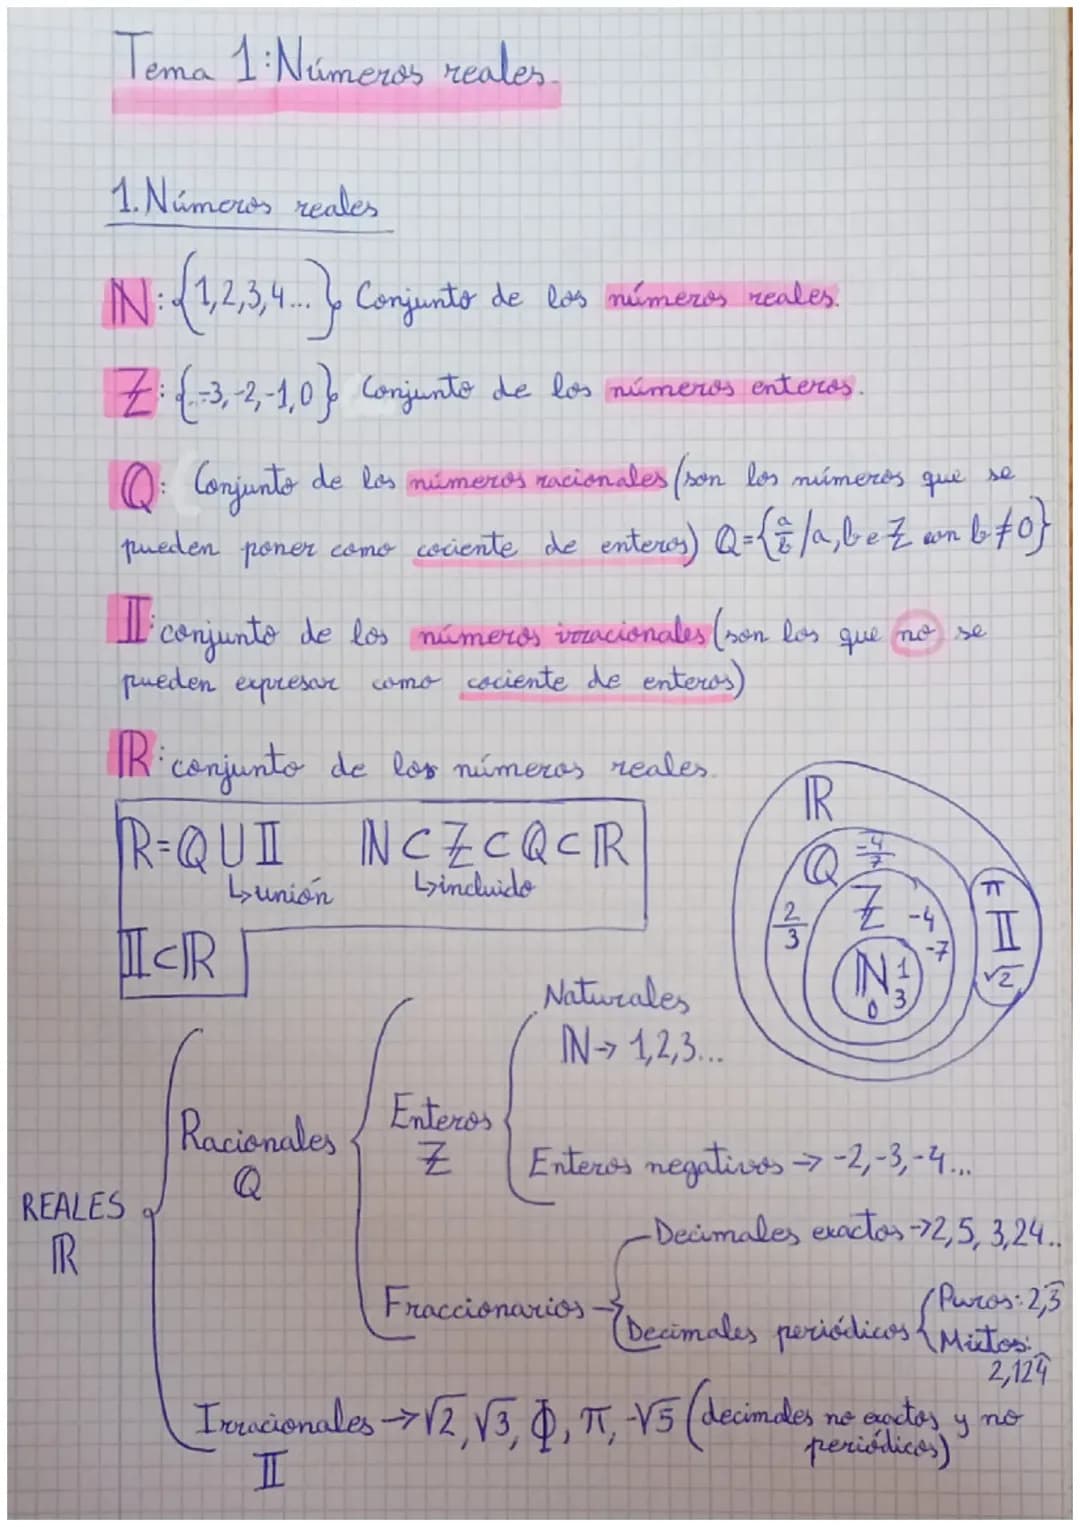 Tema 1: Números reales.
1. Números reales
ℕ: {1,2,3,4...} Conjunto de los números reales.
ℤ: {..-3,-2,-1,0} Conjunto de los números enteros.
ℚ: Conjunto de los números racionales (son los números que se
pueden poner como cociente de enteros) ℚ={a/b / a,b e ℤ con b≠0}
𝕀: conjunto de los números irracionales (son los que no se
pueden expresar como cociente de enteros)
ℝ: conjunto de los números reales.
ℝ=ℚ∪𝕀 ℕ⊂ℤ⊂ℚ⊂ℝ
↳unión ↳incluido
𝕀⊂ℝ
ℝ
ℚ -4/7
2/3 ℤ -4 -7
ℕ 1 0 3
π 𝕀 √2
REALES
ℝ
Racionales
ℚ
Enteros
ℤ
Naturales
ℕ→ 1,2,3...
Enteros negativos → -2,-3,-4...
Fraccionarios
Decimales exactos →2,5, 3,24..
Decimales periódicos
Puros: 2,3̂
Mixtos:
2,124̂
Irracionales → √2, √3, Φ, π, -√5 (decimales no exactos y no
periódicos)
𝕀